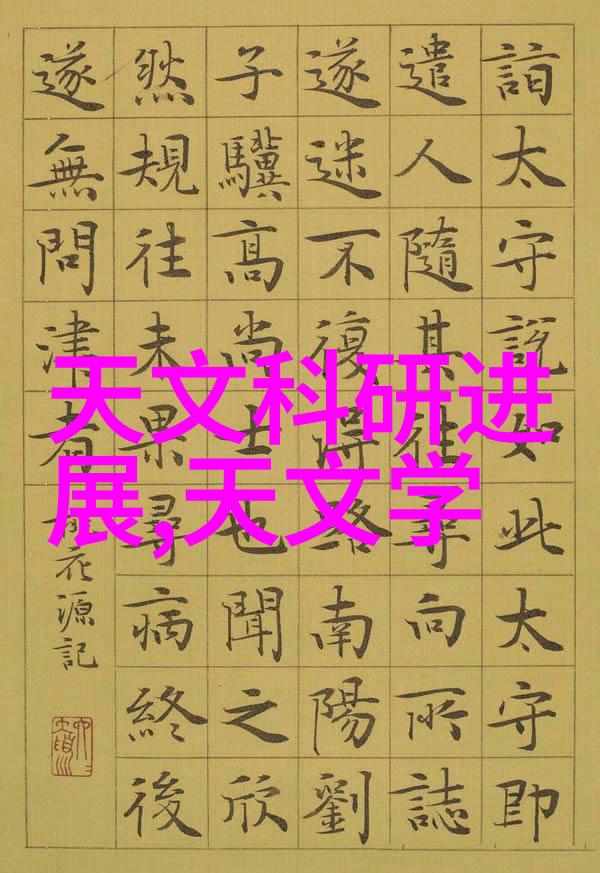 詣太守說如此太守即
遣人隨其往尋向所誌
遂迷不復得路南陽劉
子驥高尚士也聞之欣
然規往未果尋病終後
遂無問津者
桃花源記
天文科研进
展,天文学